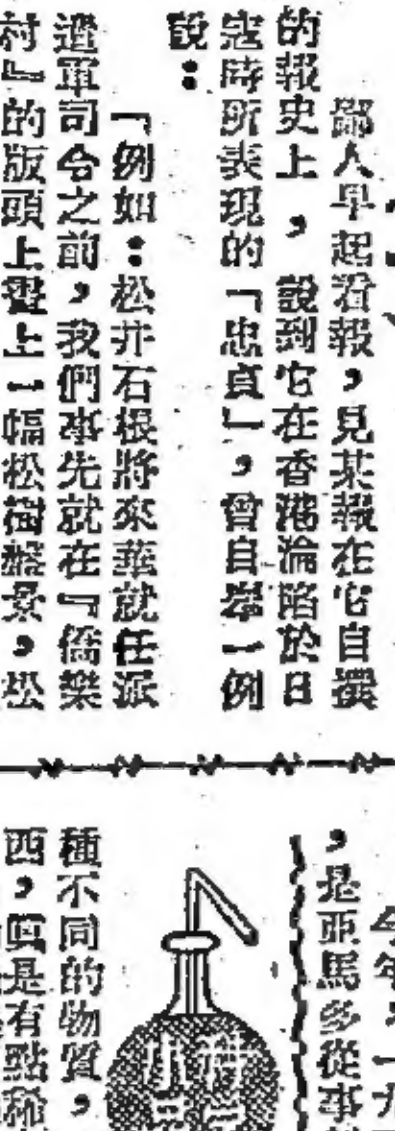 鄙人早起看報，見某報在它自撰
的報史上，說到它在香港淪陷於日
寇時所表現的「忠貞」，曾自举一例
說：
「例如：松井石根將來華就任派
遣軍司令之前，我們事先就在『僑樂
村』的版頭上登上一幅松樹盤景，松
今年，一九
，是亞馬多從事
種不同的物質，
西，眞是有點稀